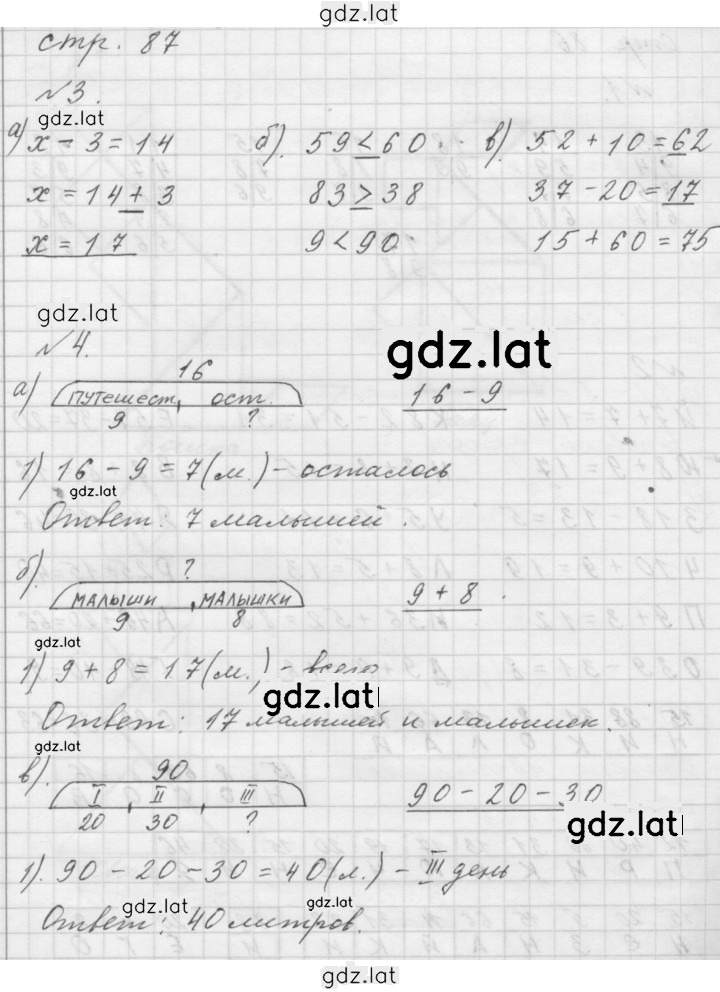 gdz.lat
стр. 87
№3.
gdz.lat
а) x - 3 = 14 б). 59 < 60 в). 52 + 10 = 62
x = 14 + 3 83 > 38 37 - 20 = 17
x = 17 9 < 90 15 + 60 = 75
gdz.lat
№4.
gdz.lat
16
а) путешест. ост. 16 - 9
9 ?
1) 16 - 9 = 7 (м.) - осталось
gdz.lat
Ответ: 7 малышей.
?
б). малыши малышки 9 + 8
9 8
gdz.lat
1) 9 + 8 = 17 (м.) - всего
gdz.lat
Ответ: 17 малышей и малышек.
gdz.lat
90
в). I II III 90 - 20 - 30
20 30 ?
gdz.lat
1). 90 - 20 - 30 = 40 (л.) - III день
gdz.lat gdz.lat
Ответ: 40 литров.
gdz.lat